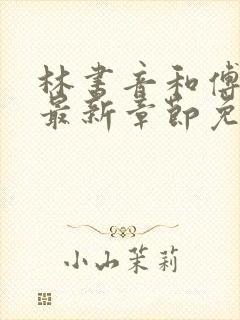 林书音和傅
最新章节免
小山茉莉